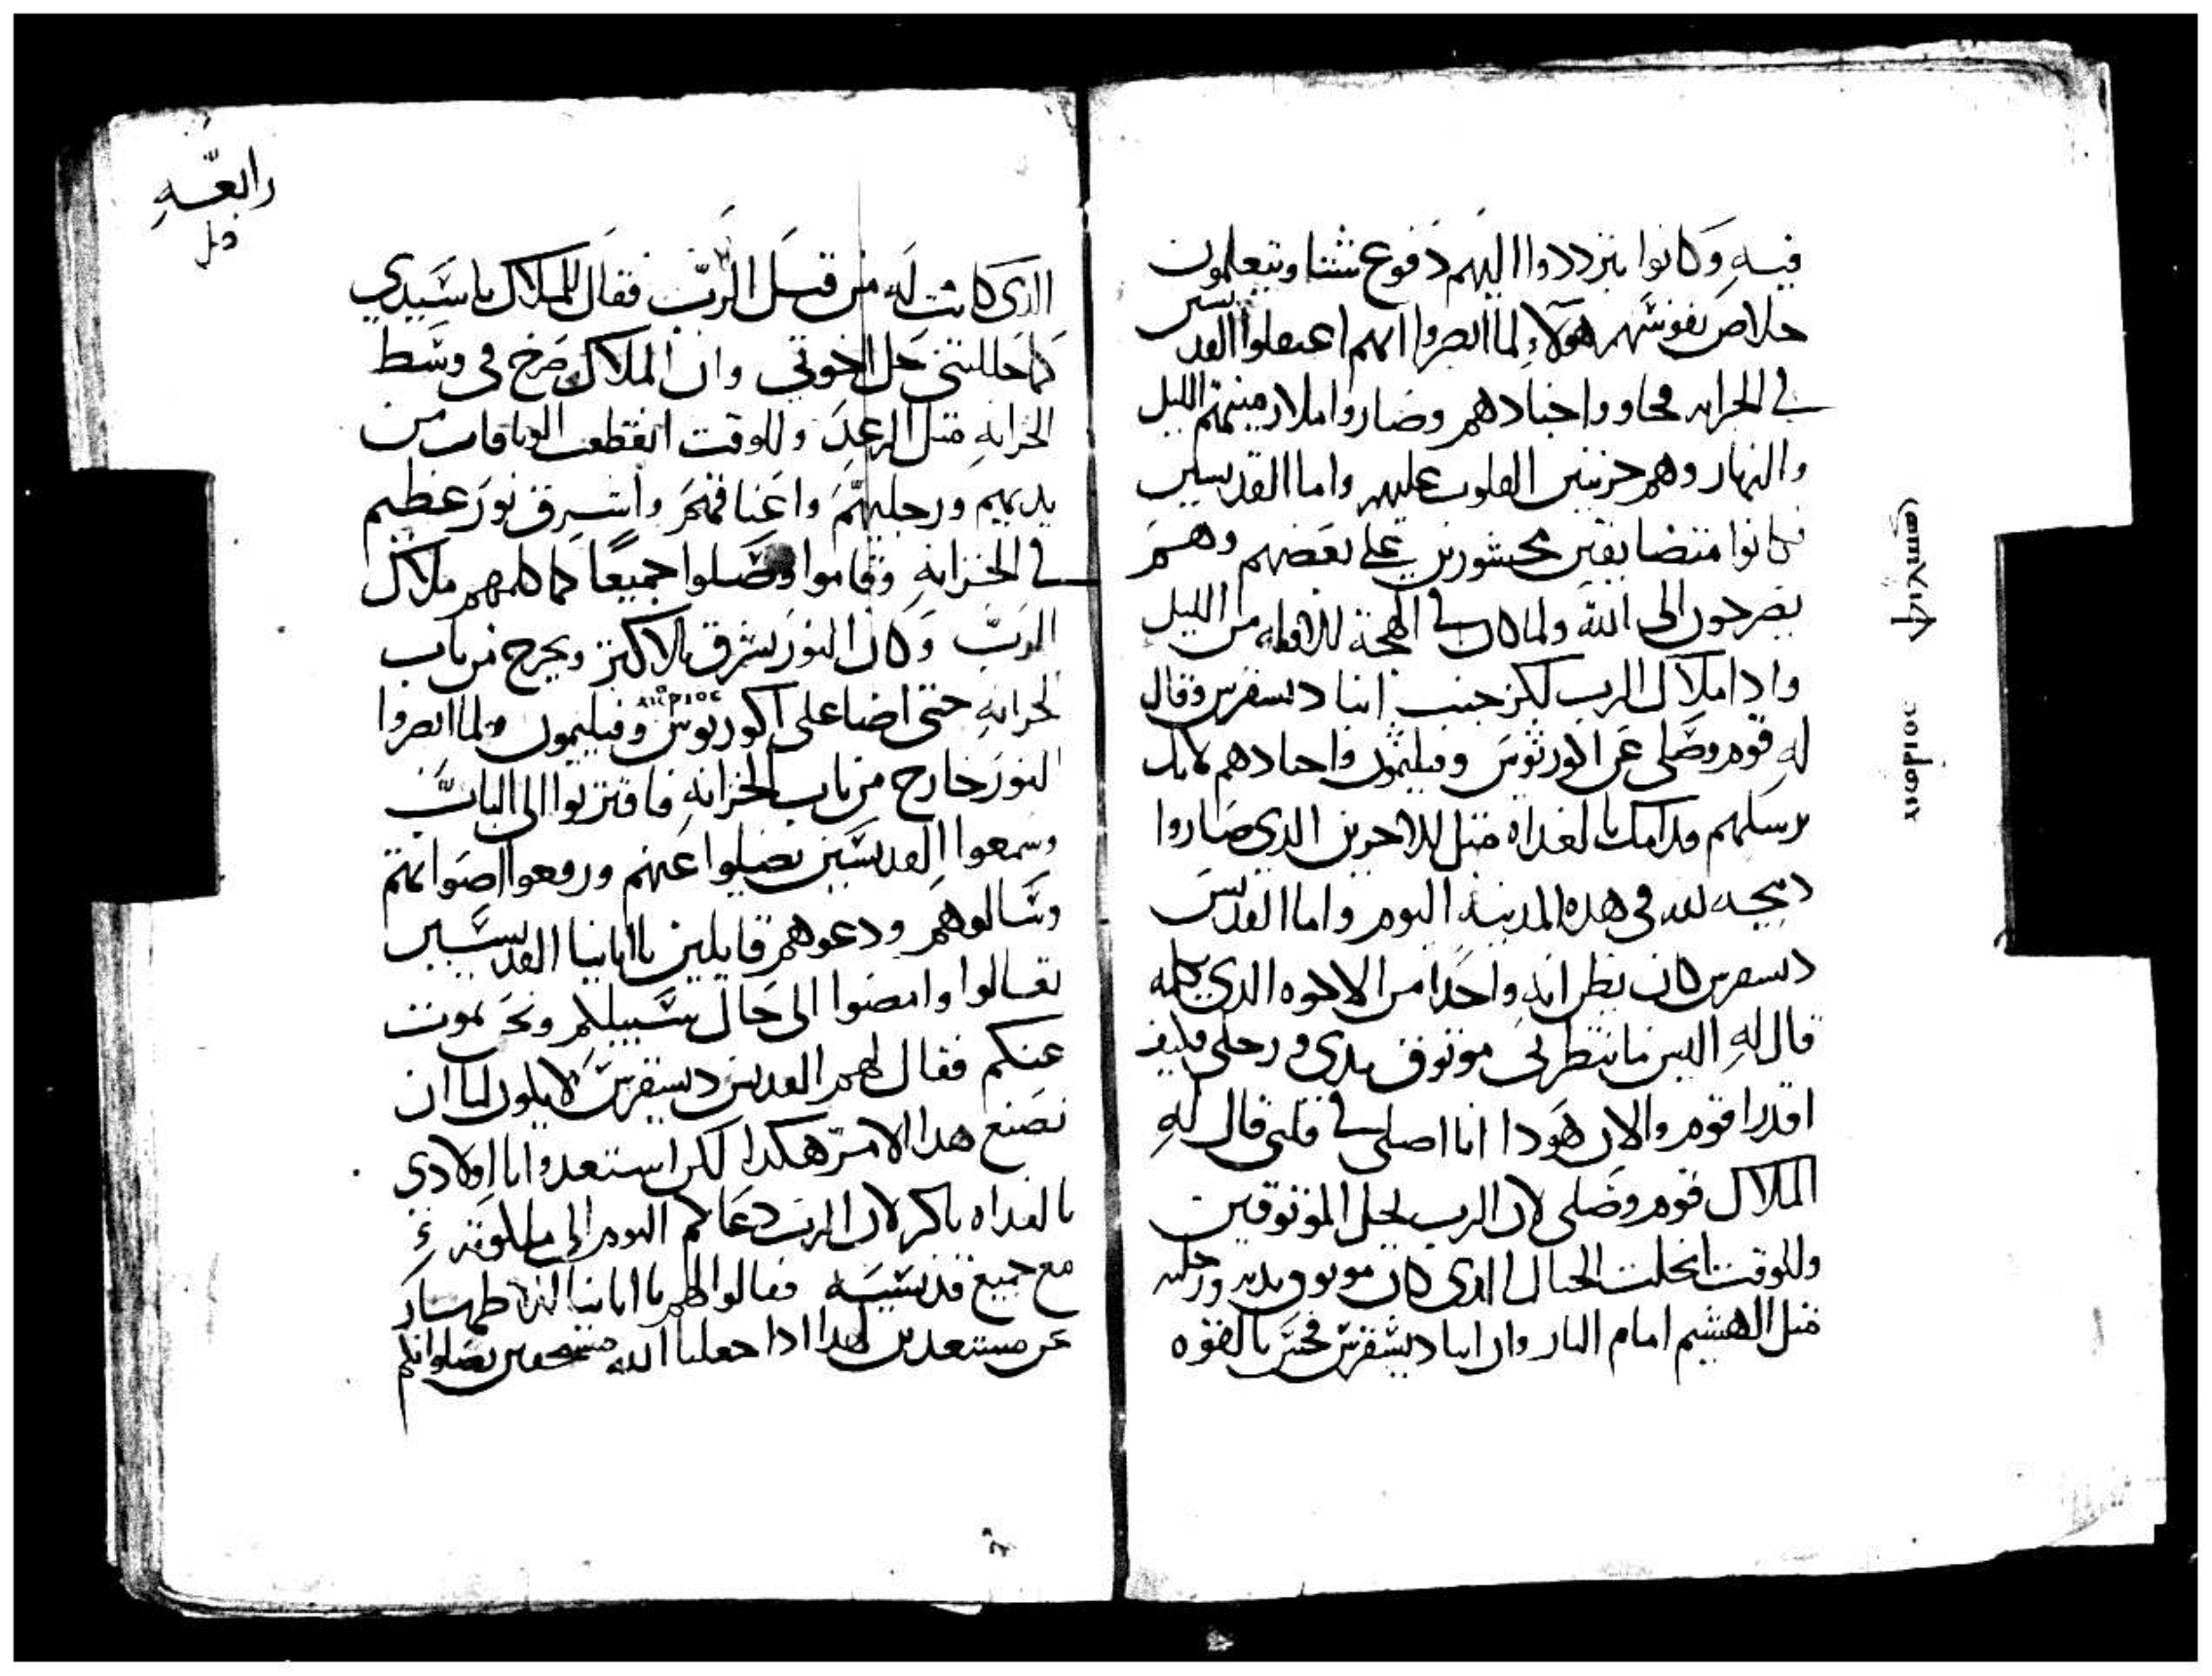 فيه وكانوا يترددوا اليهم دفوع شتا ويتعلمون
خلاص نفوسهم هولاء لما ابصروا انهم اعتقلوا القديسين
في الخزانه وصاروا الليل
والنهار وهم حزينين القلوب عليهم واما القديسين
فكانوا متضايقين محشورين على بعضهم وهم
يصرخون الى الله ولما كان في الهجعة الاوله من الليل
واذا ملاك الرب لكز جنب انبا ديسقرس وقال
له قوم وصلى عن اكورثوس وفيليمون واجنادهم لانك
ترسلهم قدامك بالغداه مثل الاخرين الذي صاروا
دبيحه لله في هذه المدينه اليوم واما القديس
ديسقرس كان يظن انه واحدا من الاخوه الذي يكلمه
قال له اليس ما تنظرني موثوق يدي ورجلي فكيف
اقدر اقوم والان هودا انا اصلي في قلبي قال له
الملاك قوم وصلى لان الرب يحل الموثوقين
وللوقت انحلت الحبال الذي كان موثوق يديه ورجليه
مثل الهشيم امام النار وان انبا ديسقرس بالقوه
ⲁⲕⲟⲣⲓⲟⲥ
رابعه
الذي كانت له من قبل الرب فقال للملاك يا سيدي
كما حللتني حل اخوتي وان الملاك صرخ في وسط
الخزانه مثل الرعد وللوقت انقطعت الوثاقات من
يديهم ورجليهم واعناقهم واشرق نور عظيم
في الخزانه وقاموا وصلوا جميعا كما كلمهم ملاك
الرب وكان النور يشرق بالاكثر ويخرج من باب
الخزانه حتى اضا على اكورثوس وفيليمون ولما ابصروا
النور خارج من باب الخزانه فاقتربوا الى الباب
وسمعوا القديسين يصلوا عنهم ورفعوا اصواتهم
وسالوهم ودعوهم قايلين يا ابانينا القديسين
تعالوا وامضوا الى حال سبيلكم ونحن نموت
عنكم فقال لهم القديس ديسقرس لا يكون لنا ان
نصنع هذا الامر هكذا لكن استعدوا انتم يا اولادي
بالغداه باكر لان الرب دعاكم اليوم الى ملكوته
مع جميع قديسيه فقالوا لهم يا ابانينا الاطهار
نحن مستعدين لهذا اذا جعلنا الله مستحقين بصلواتكم